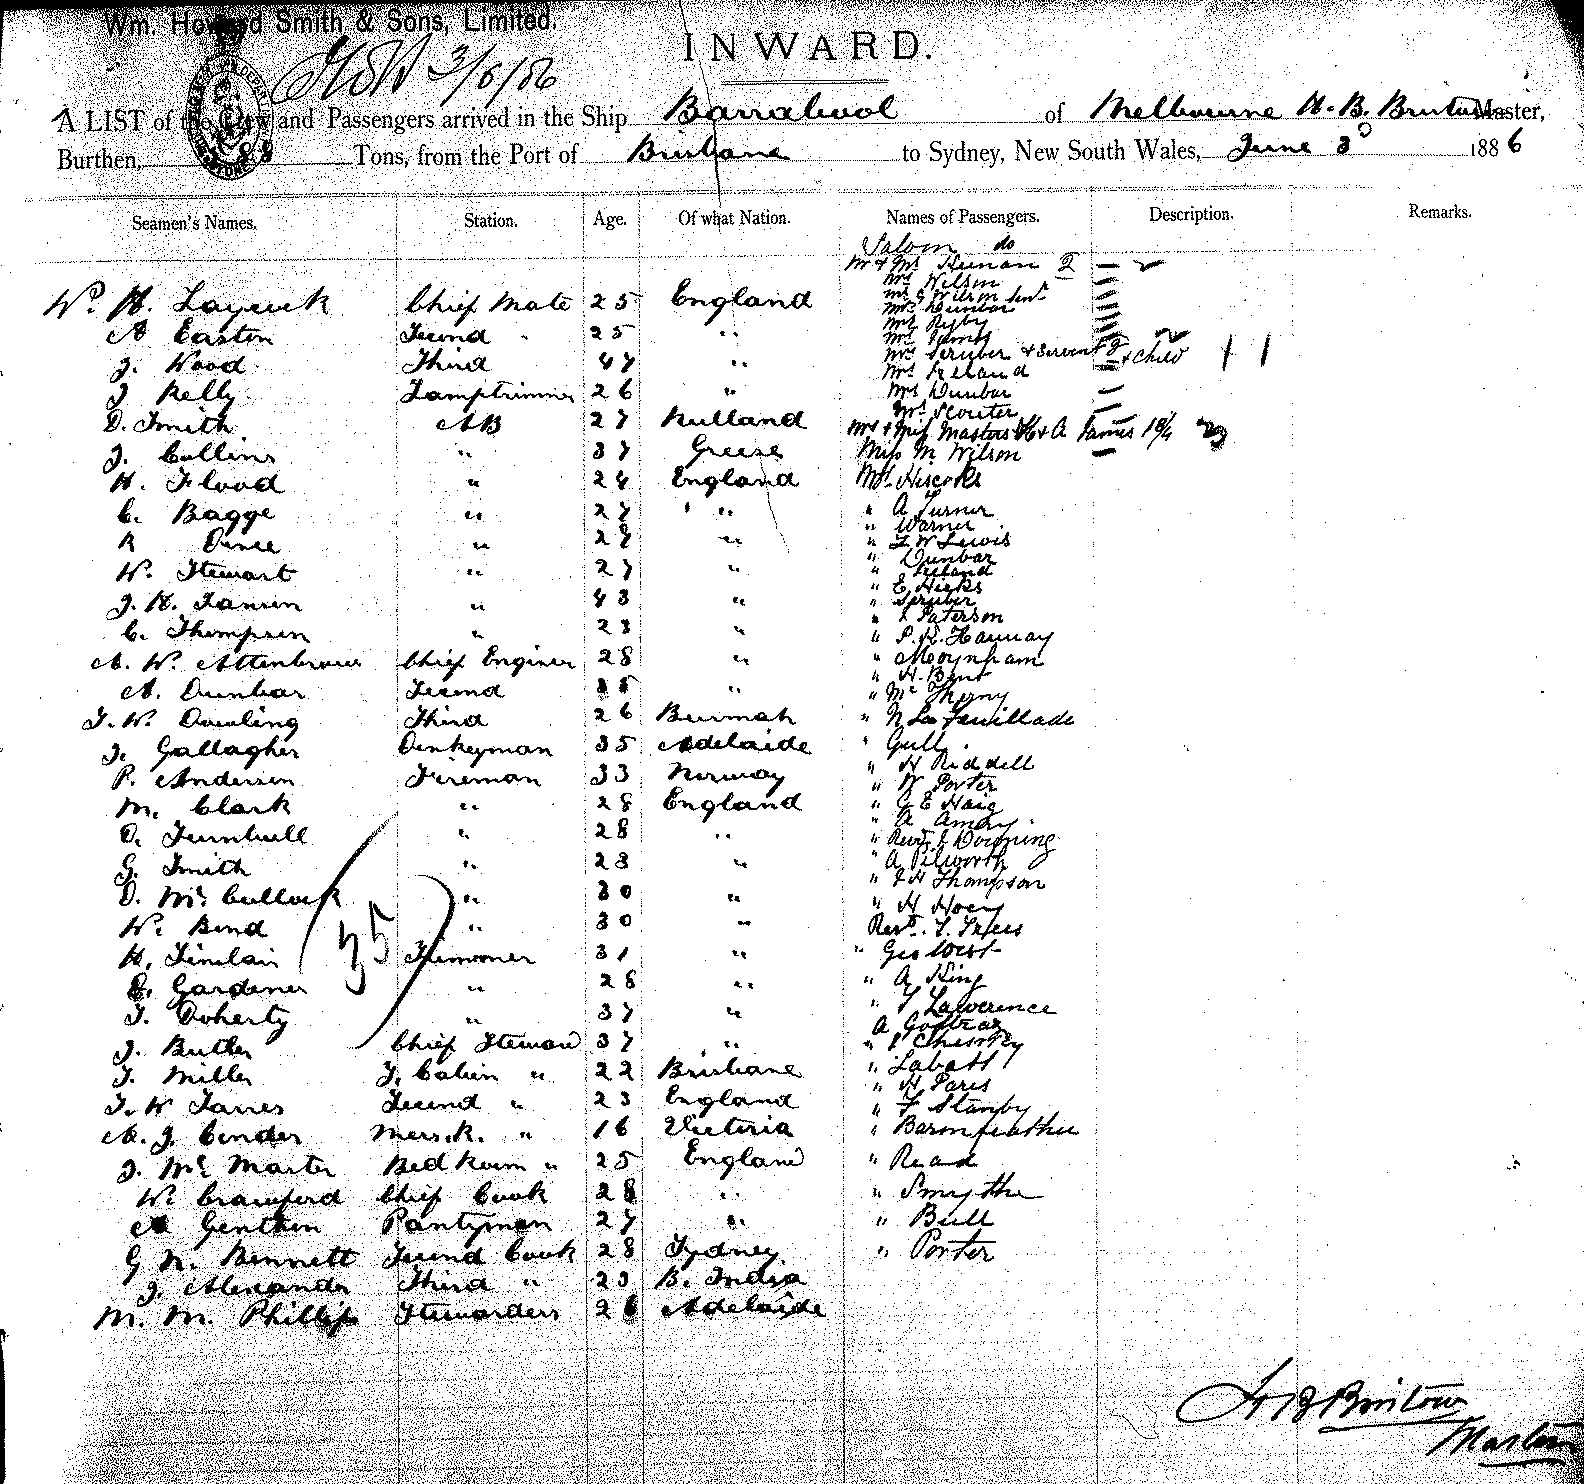 Wm. Howard Smith & Sons, Limited.
HSW 3/6/86
INWARD.
A LIST of the Crew and Passengers arrived in the Ship Barrabool of Melbourne H. B. Bristow Master,
Burthen, Tons, from the Port of Brisbane to Sydney, New South Wales, June 3d 1886
Seamen's Names. Station. Age. Of what Nation. Names of Passengers. Description. Remarks.
Saloon do
Mr & Mrs Heenan 2
Mrs Wilson
W. H. Laycock Chief Mate 25 England
Mrs Wilson Senr
Mrs Dunbar
Mrs Rigby
A Easton Second " 25 "
J. Wood Third 47 "
Mrs Scruber & Servant & child
Mrs Ireland
J Kelly Lamptrimmer 26 "
Mrs Dunbar
Mrs Scouter
D. Smith AB 27
Mrs & Miss Masters H & A James
J. Collins " 37 Greese
Miss M. Wilson
H. Flood " 24 England
Mr Hiscocks
C. Bagge " 27 "
" A Turner
" Warner
R " 27 "
" L W Lewis
" Dunbar
W. Stewart " 27 "
" Ireland
" E Hicks
J. H. Jansen " 43 "
" Scruber
" Paterson
C. Thompson " 23 "
" P. R. Hannay
A. W. Attenbrow Chief Enginer 28 "
" Moynham
" H. Bent
A. Dunbar Second 35 "
" Mc Thorny
J. W. Dowling Third 26 Burmah
" N La Feuillade
J. Gallagher Donkeyman 35 Adelaide
" Gull
P. Anderson Fireman 33 Norway
" H Riddell
" W Porter
M. Clark " 28 England
" G E Haig
" A Amory
D. Turnbull " 28 "
" Revd J Downing
G. Smith " 23 "
" A Pilworth
" J H Thompson
D. McCullock " 30 "
" H Hoey
W. Bond " 30 "
Revd.
H. Sinclair Trimmer 31 "
" Geo West
35
E. Gardener " 28 "
" A King
T. Doherty " 37 "
" T Lawerence
A
J. Butler Chief Steward 37 "
"
" Labatt
T. Miller F. Cabin " 22 Brisbane
" H Paris
J. W James Second " 23 England
" F Stanby
A. J. Conder Mess. R. " 16 Victoria
" Baronfeather
J. McMaster Bed Room " 25 England
" Read
W. Crawford Chief Cook 28 "
" Smythe
A Genthon Pantyman 27 "
" Bull
G N. Bennett Second Cook 28 Sydney
" Porter
J. Alexander Third " 23 B. India
M. M. Phillips Stewardess 26 Adelaide
H B Bristow
Master